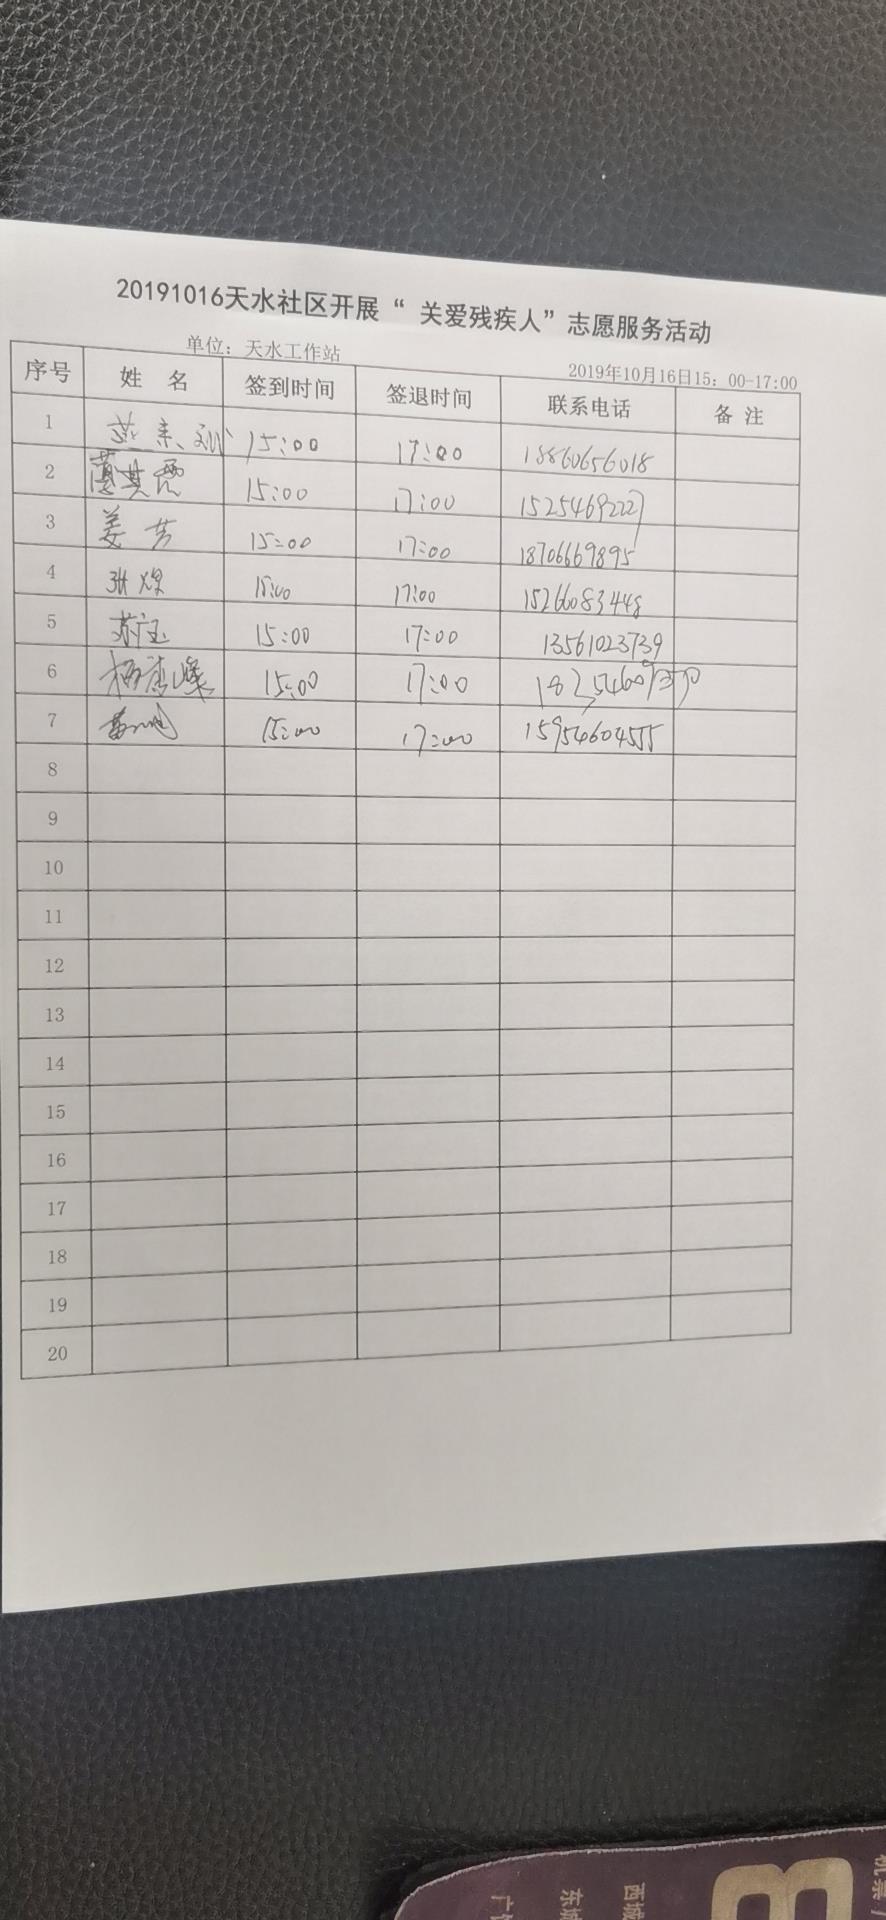 20191016天水社区开展“ 关爱残疾人”志愿服务活动
单位：天水工作站
2019年10月16日15：00-17:00
序号 姓 名 签到时间 签退时间 联系电话 备 注
1 15:00 17:00 18860656018
2 15:00 17:00 15254692227
3 姜芳 15:00 17:00 18706669895
4 张煜 15:00 17:00 15266083448
5 苏宝 15:00 17:00 13561023739
6 15:00 17:00
7 15:00 17:00 15954604555
8
9
10
11
12
13
14
15
16
17
18
19
20
8
西城
东城